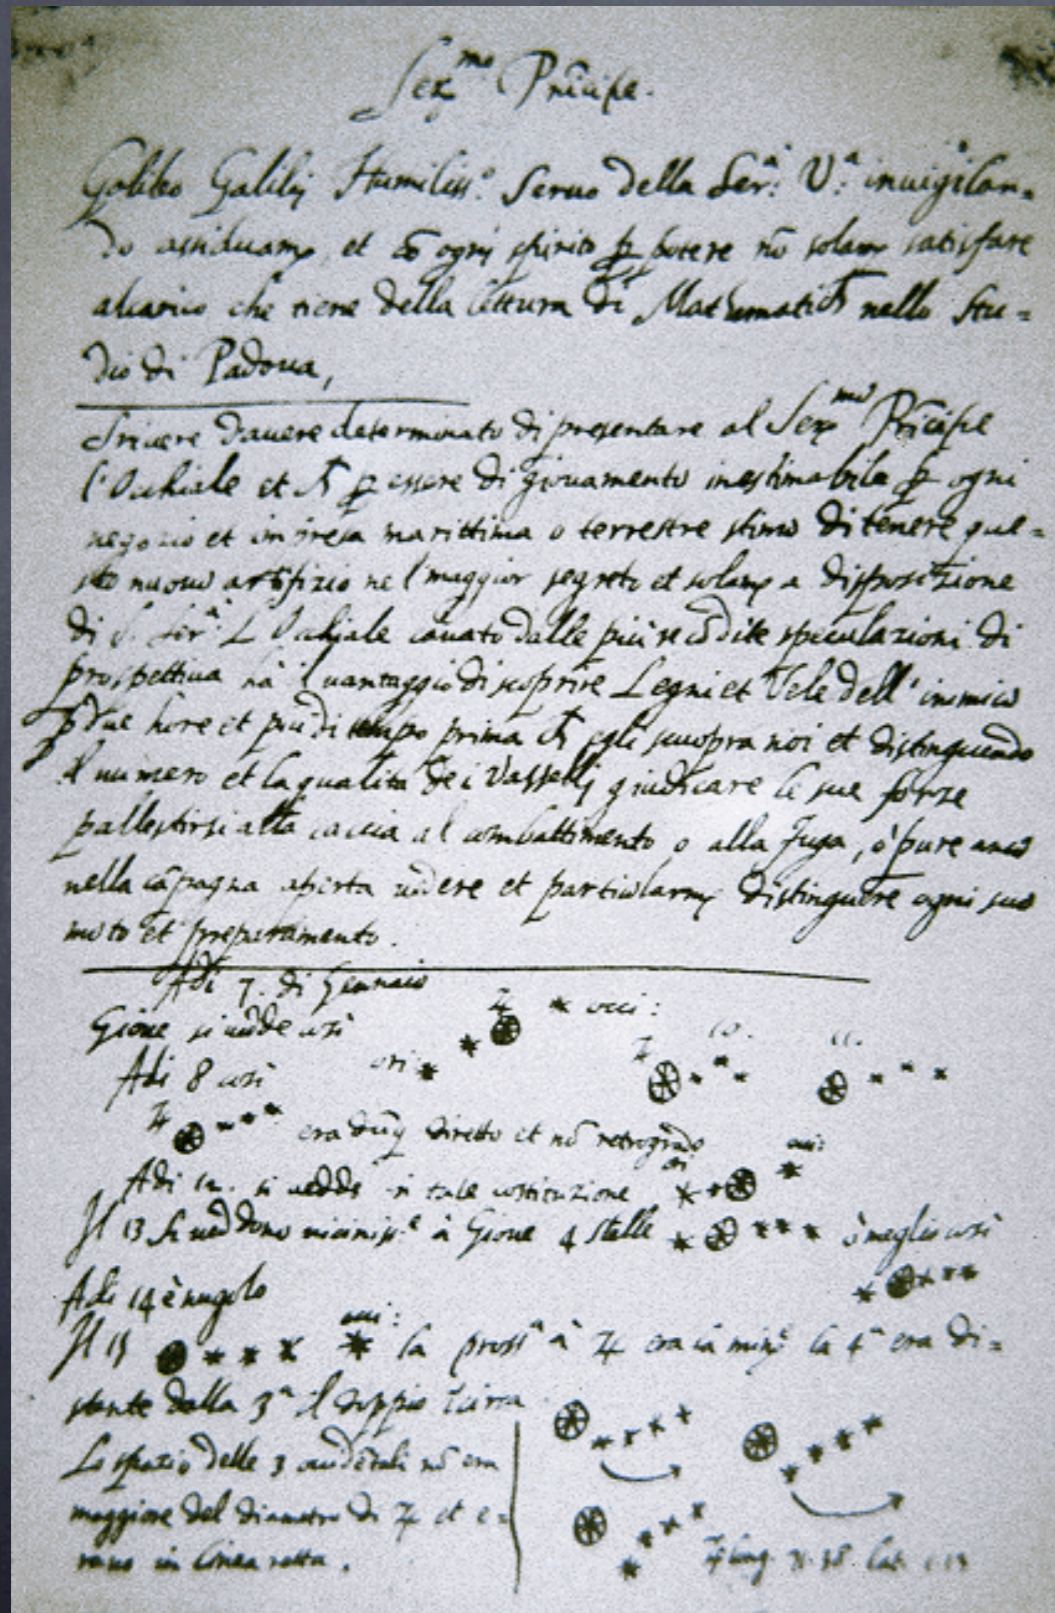 Ser.mo Prīcipe.
Galileo Galilei Humiliss.o Seruo della Ser.a V.a inuigilan=
do assiduam.e et cō ogni spirito p potere nō solam.e satisfare
alcarico che tiene della lettura di Mathematich nello Stu=
dio di Padoua,
Scriuere dauere determinato di presentare al Ser.mo Prīcipe
l'Ochiale et ch p essere di giouamento inestimabile p ogni
negozio et impresa marittima o terrestre stimo di tenere que=
sto nuouo artifizio ne l maggior segreto et solam.e a dispositione
di S. Ser.a L Ochiale cauato dalle più recōdite speculazioni di
prospettiua hà l uantaggio di scoprire Legni et Vele dell' inimico
p due hore et piu di tempo prima ch egli scuopra noi et distinguendo
il numero et la qualita de i Vasselli giudicare le sue forze
pallestirsi alla caccia al combattimento o alla fuga, ò pure anco
nella cāpagna aperta uedere et particolarm.e distinguere ogni suo
moto et preparamento.
Adi 7. di Gennaio
Gione si uedde così
♃ occ:
Adi 8 così
ori
♃ 10. 11.
♃ era dūq diretto et nō retrogrado
Adi 12. si uedde in tale costituzione
ori occ:
Il 13 si ueddono uiciniss.e à Gioue 4 stelle ò meglio così
Adi 14 è nugolo
Il 15 occ:
la pross.a à ♃ era la min.e la 4.a era di=
stante dalla 3.a il doppio circa
Lo spazio delle 3 occidētali nō era
maggiore del diametro di ♃ et e=
rano in linea retta.
♃ long. 71. 38. lat. 1.13